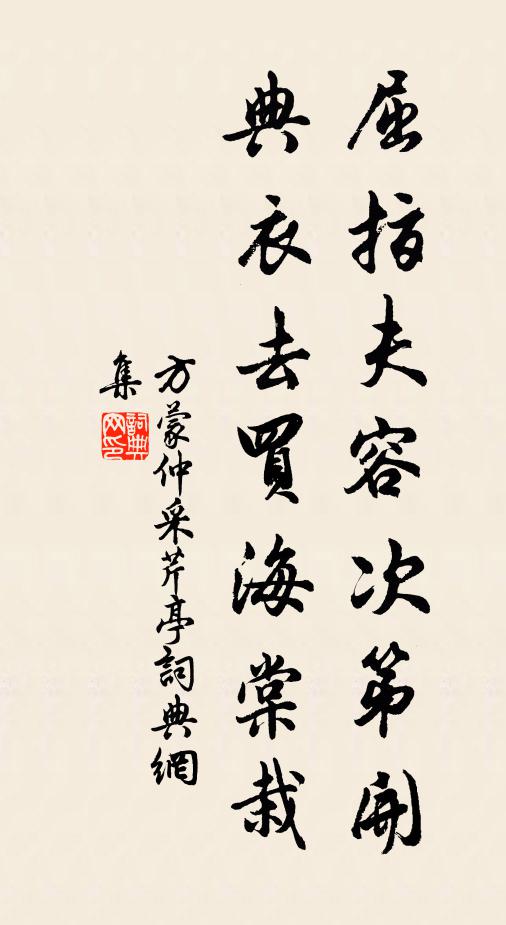 屈指夫容次第開
典衣去買海棠栽
方蒙仲采芹亭詞典網
集
詞典
网印